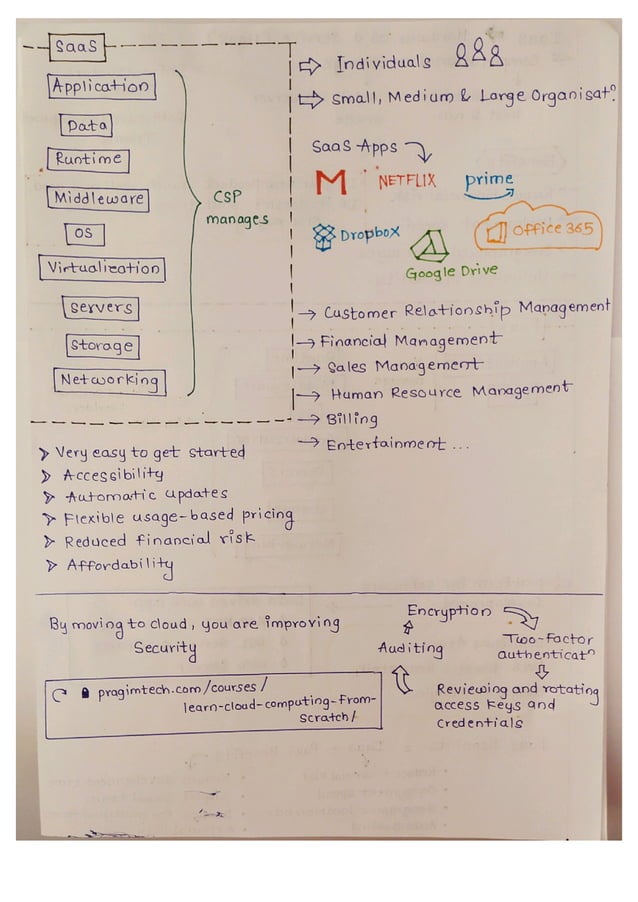 SaaS
Application
Data
Runtime
Middleware
OS
Virtualization
Servers
Storage
Networking
CSP
manages
Individuals
Small, Medium & Large Organisatn.
SaaS Apps
M NETFLIX prime
Dropbox
Office 365
Google Drive
→ Customer Relationship Management
→ Financial Management
→ Sales Management
→ Human Resource Management
→ Billing
→ Entertainment ...
Very easy to get started
Accessibility
Automatic updates
Flexible usage-based pricing
Reduced financial risk
Affordability
By moving to cloud, you are improving
Security
pragimtech.com/courses/
learn-cloud-computing-from-
scratch/
Encryption
Two-factor
authenticatn
Reviewing and rotating
access keys and
credentials
Auditing